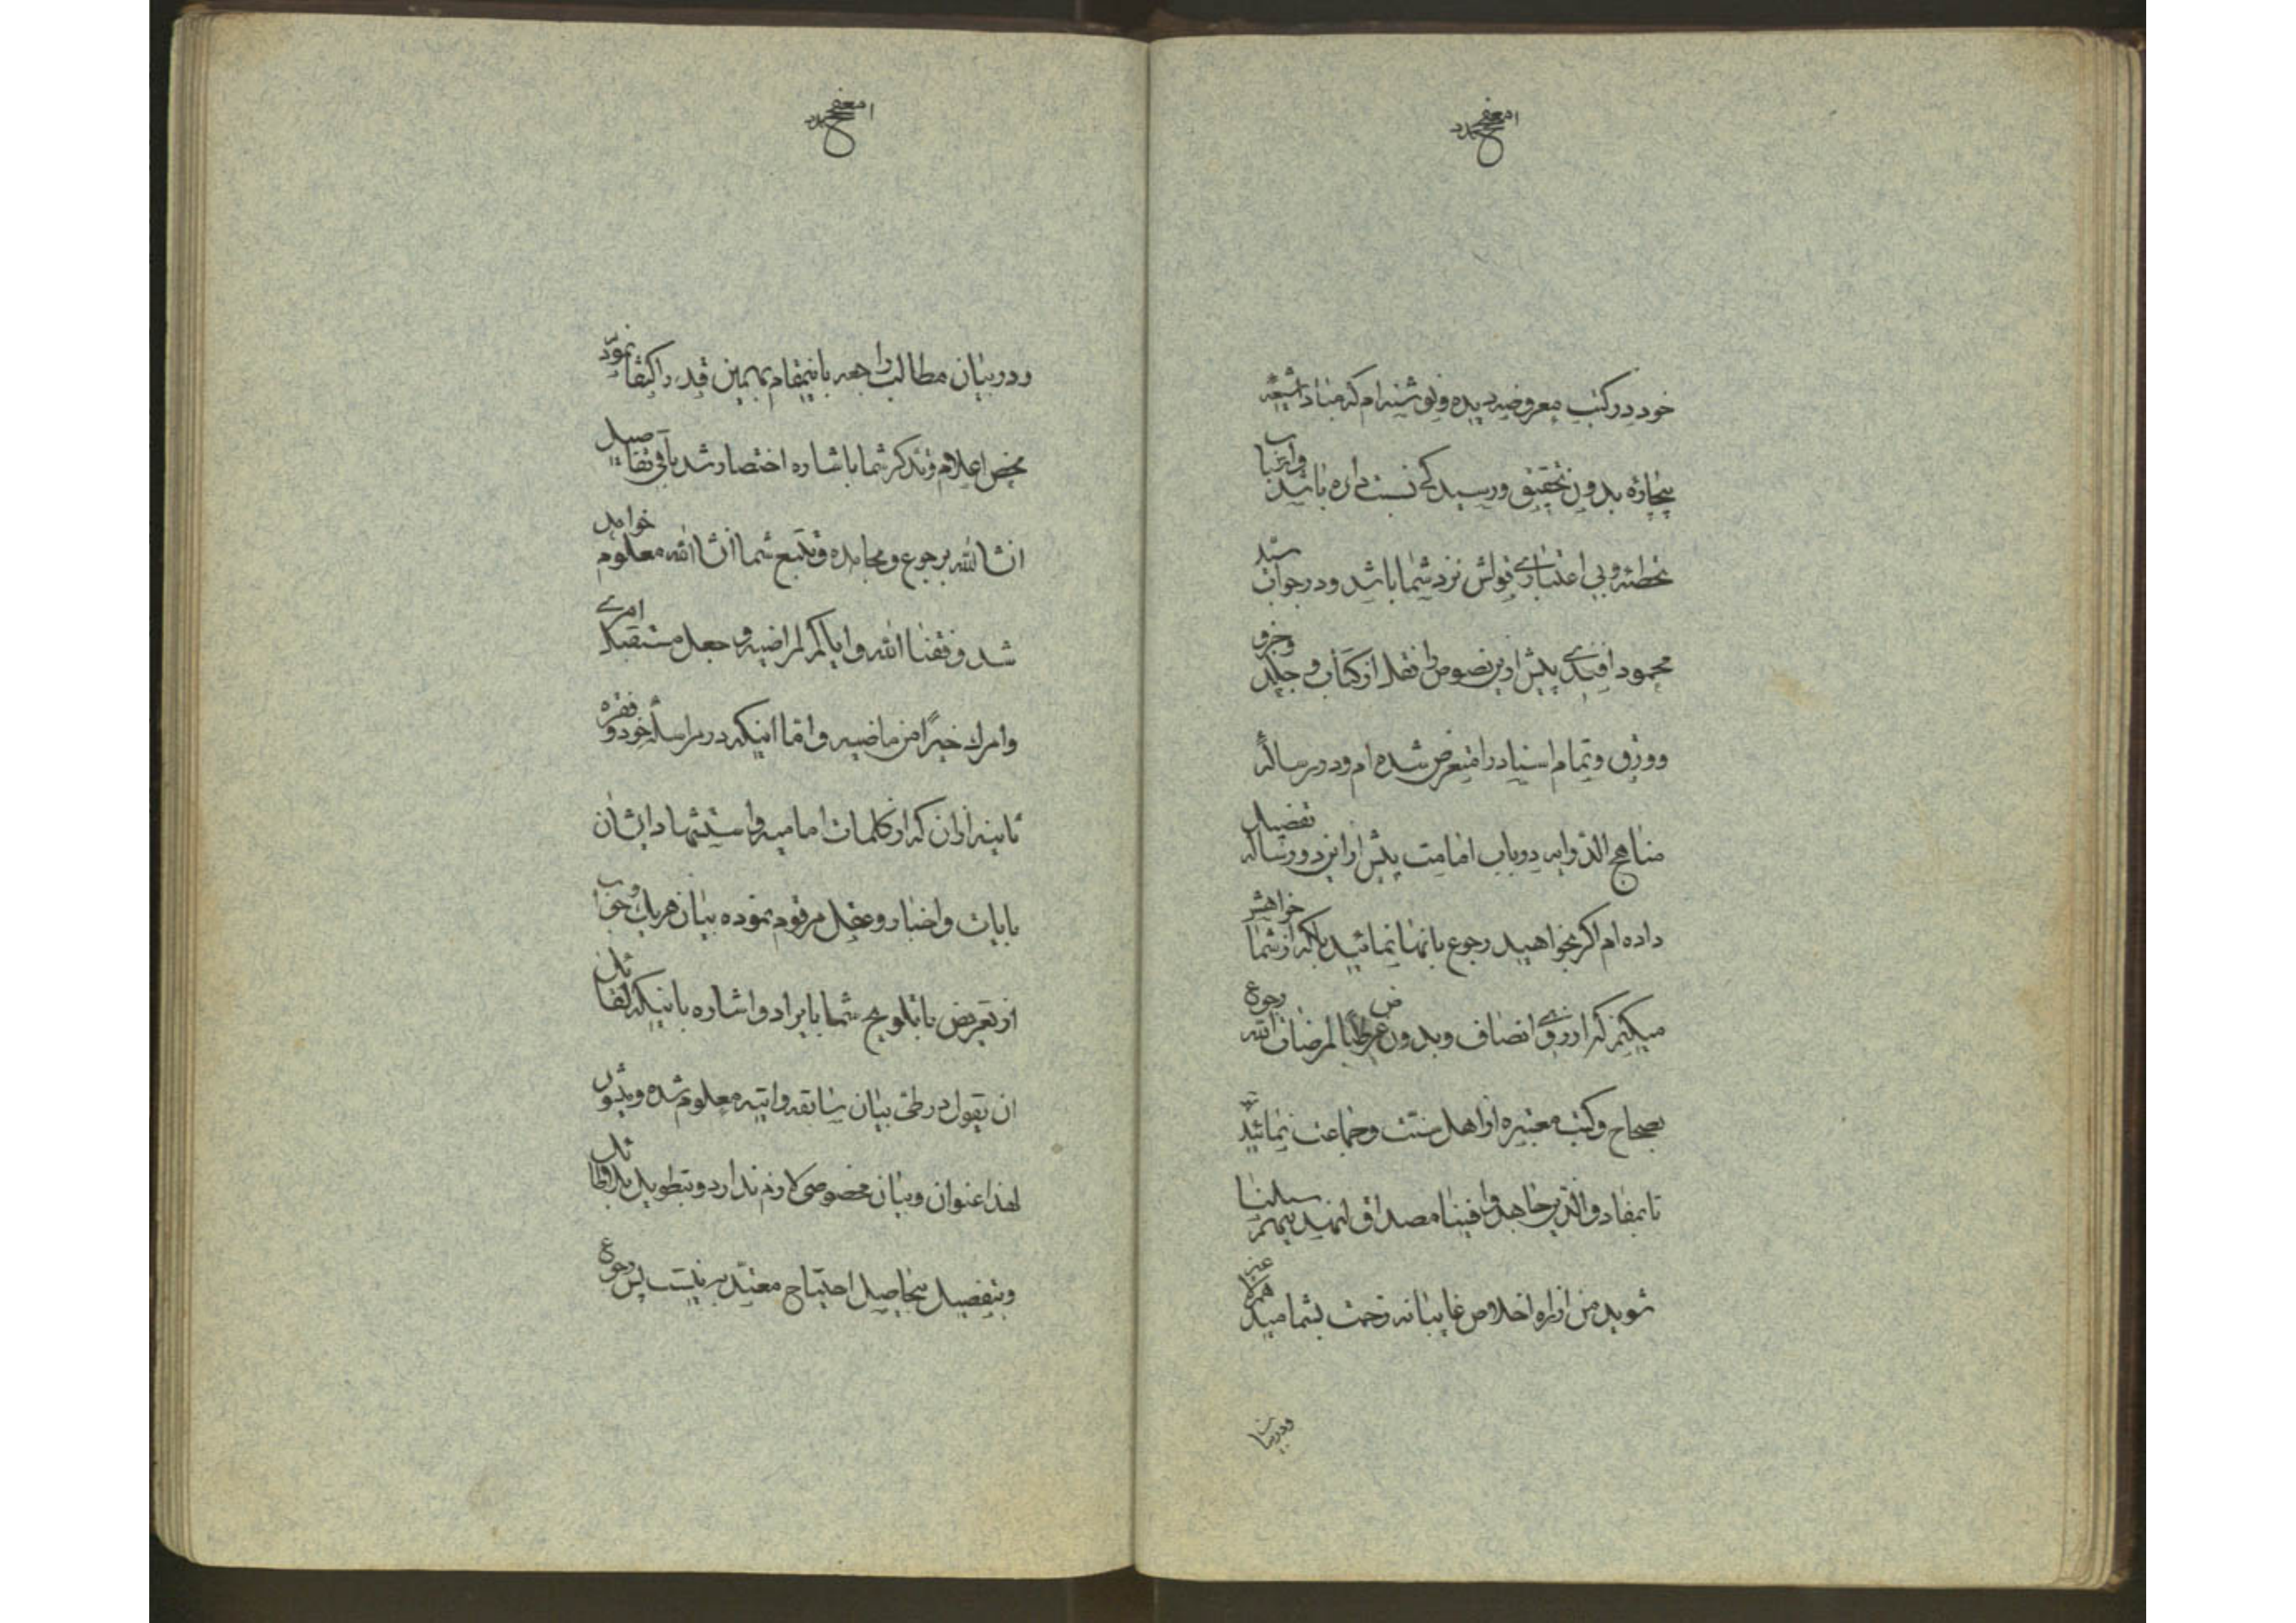 خود در کتب معروضه دیده و نوشته‌ام که مبادا شیعهٔ
بیچاره بدون تحقیق و رسیدگی نسبت داده باشد و این باب
تخطئه و بی اعتباری قولش نزد شما باشد و در جواب سید
محمود افندی پیش از این نصوص را نقلا از کتاب و جلد و جزو
و ورق و تمام اسناد را متعرض شده‌ام و در رسالهٔ
مناهج در باب امامت پیش از این دو رساله تفصیل
داده‌ام اگر بخواهید رجوع بانها نمائید بلکه از شما خواهش
میکنم که از روی انصاف و بدون غرض طلبا لمرضات الله رجوع
بصحاح و کتب معتبره از اهل سنت و جماعت نمائید
تا بمفاد والذین جاهدوا فینا مصداق لنهدینهم سبلنا
شوید من از راه اخلاص غایبانه زحمت بشما میدهم
و در بیان
و در بیان مطالب راجعه باینمقام بهمین قدر اکتفا نمود
محض اعلام و تذکر شما باشاره اختصار شد باقی تفاصیل
انشاالله برجوع و مجاهده و تتبع شما انشاالله معلوم خواهد
شد وفقنا الله و ایاکم لمراضیه و جعل مستقبل امری
و امرک خیرًا من ماضیه و اما اینکه در مراسلهٔ خود فقره
ثانیه از آن که از کلمات امامیه و استشهاد ایشان
بایات و اخبار و عقل مرقوم نموده بیان هریک و جواب
از تعریض یا تلویح شما بایراد و اشاره باینکه لقائل
ان یقول در طی بیان سابقه و اتیه معلوم شده و میشود
لهذا عنوان و بیان مخصوصی لازم ندارد و بتطویل بلا طائل
و بتفصیل بیحاصل احتیاج معتد به نیست پس رجوع